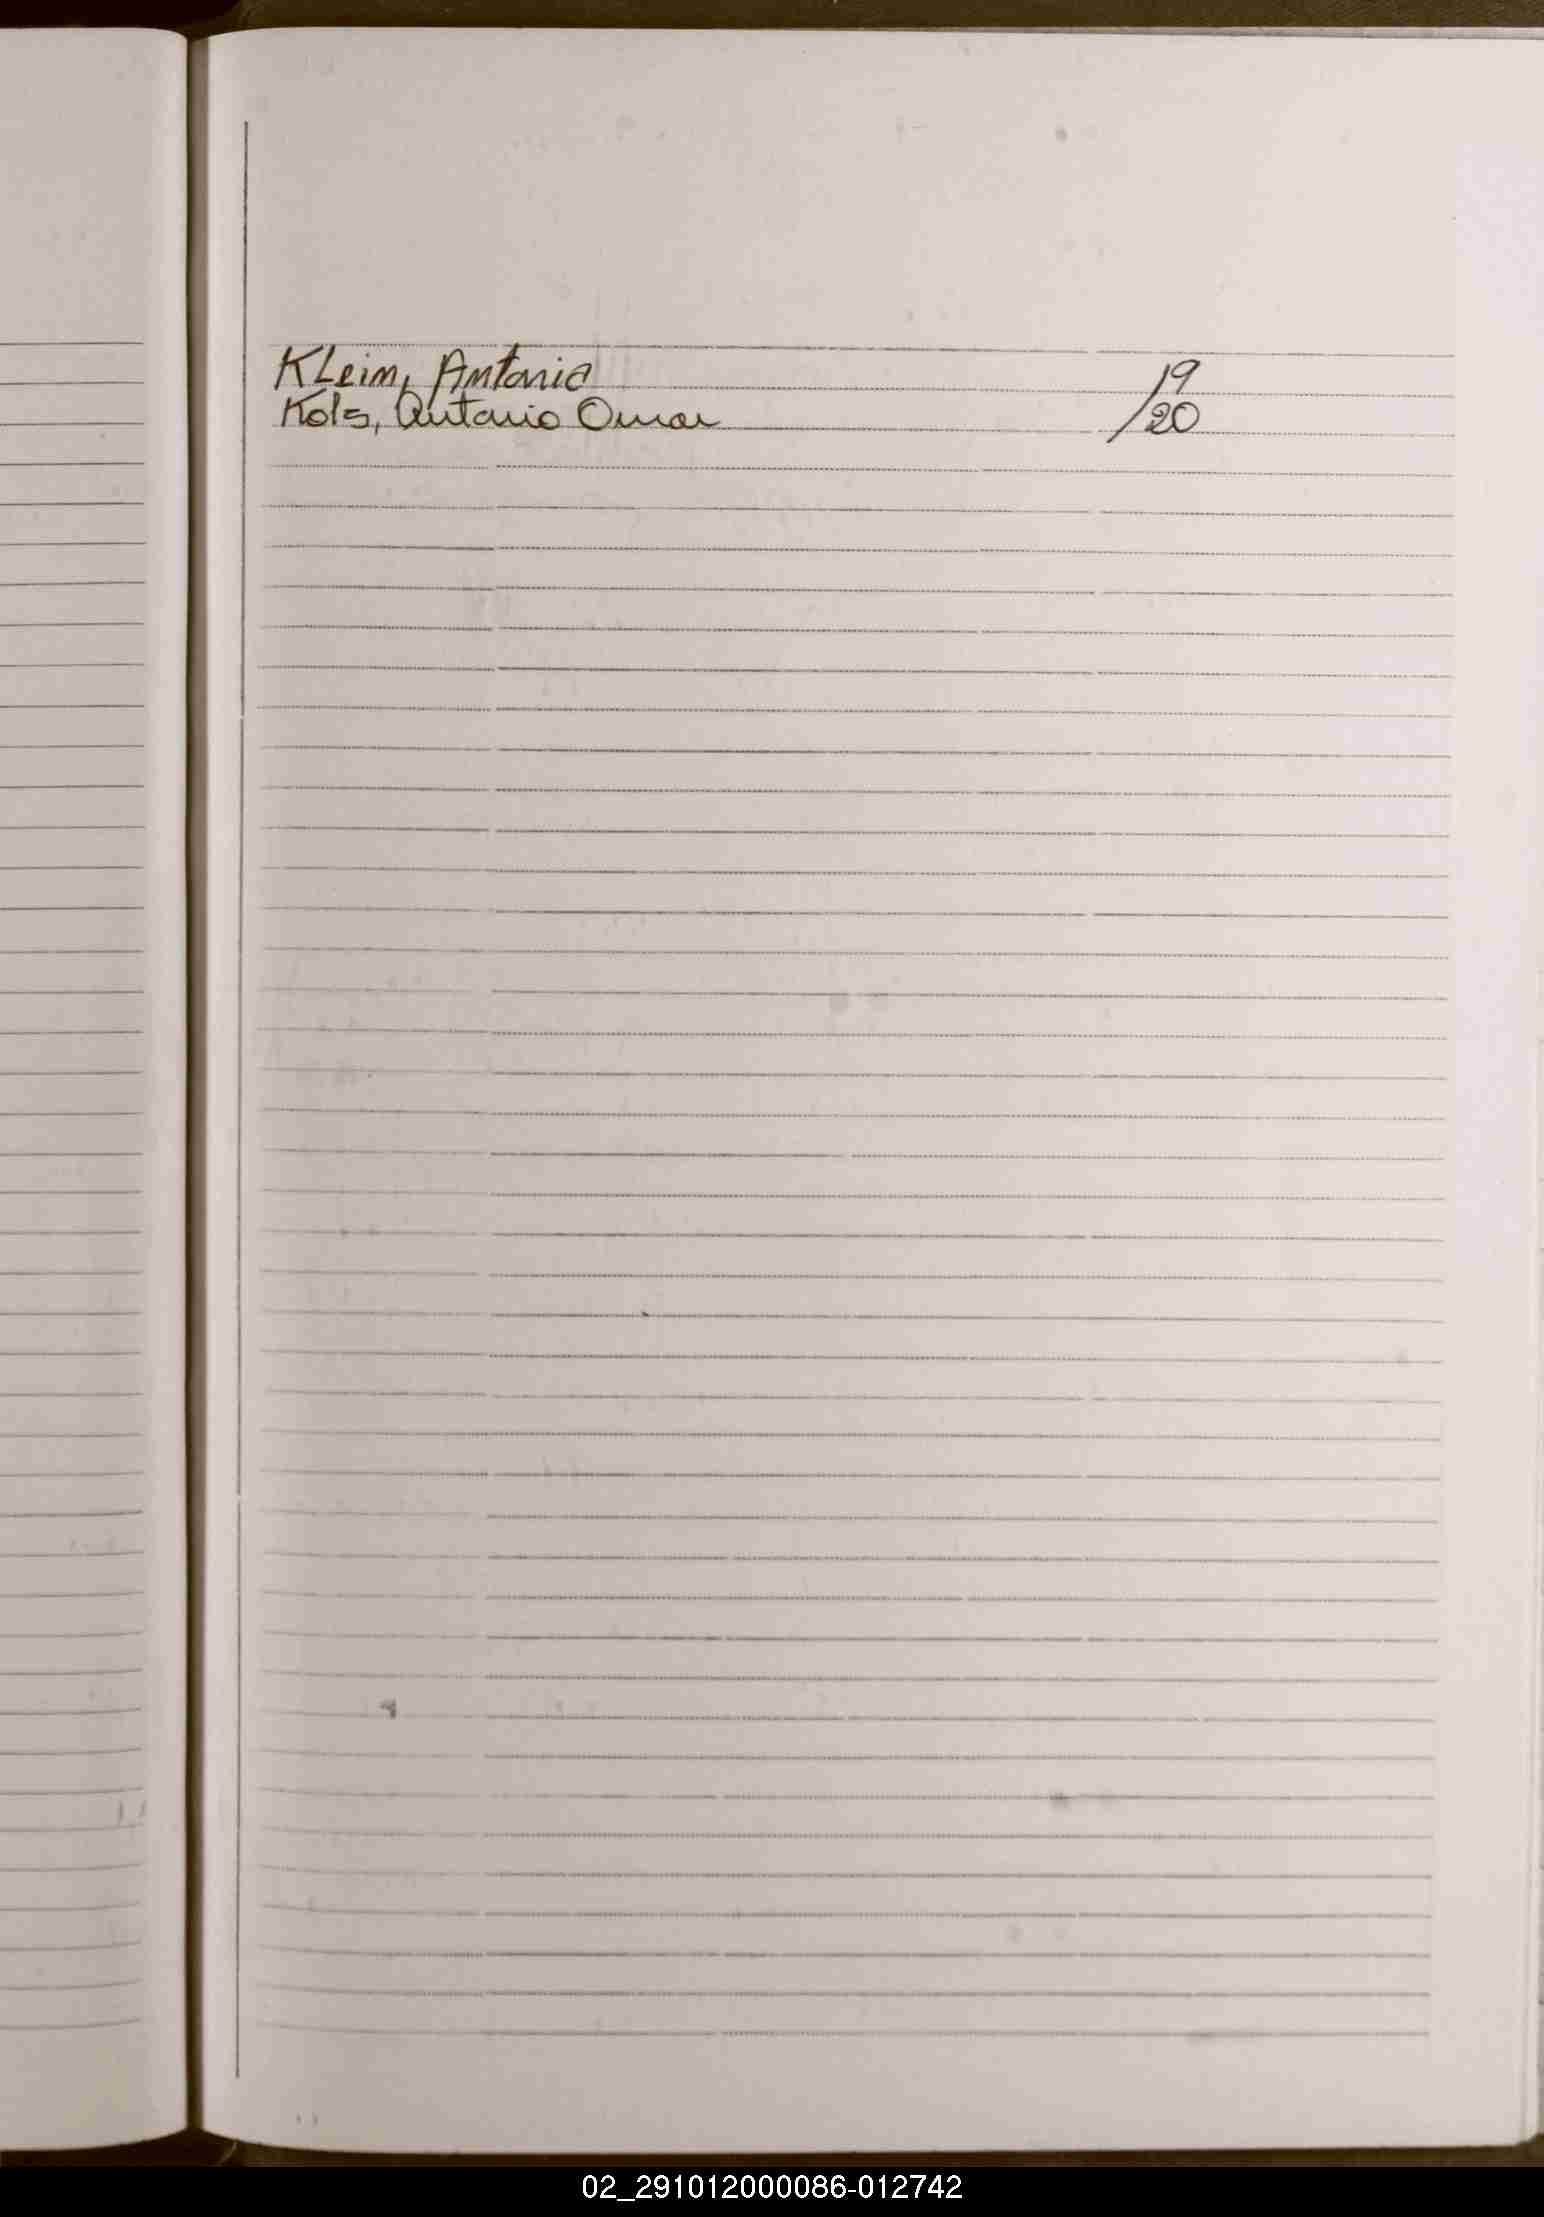 KLeim, Antonia 19
Kols, Antonio Omar /20
02_291012000086-012742